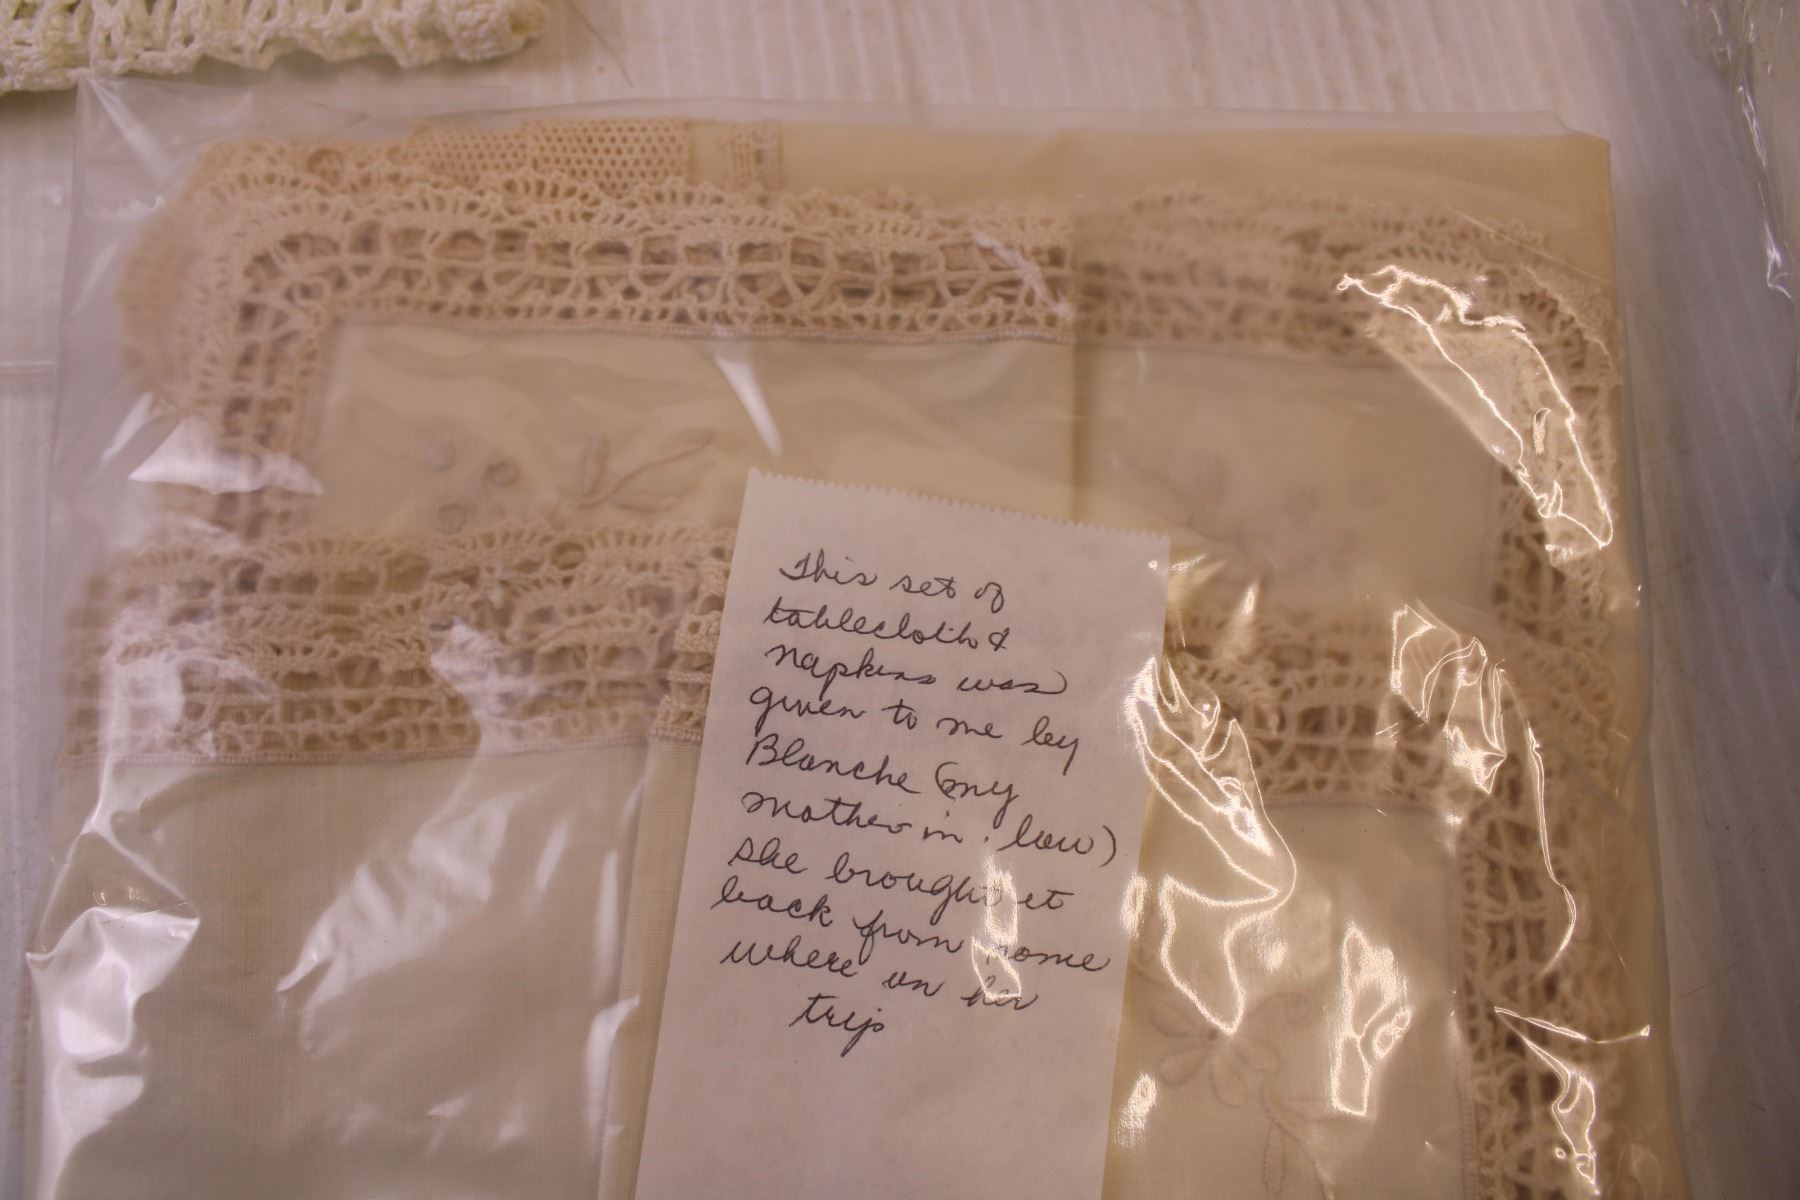 This set of
tablecloth &
napkins was
given to me by
Blanche (my
mother in. law)
she brought it
back from some
where on her
trip